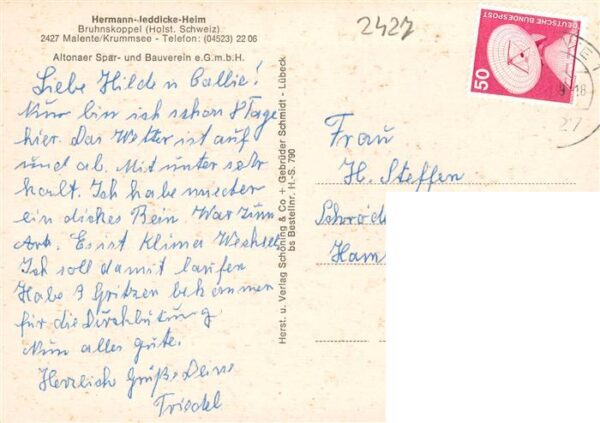 Hermann-Jeddicke-Heim
Bruhnskoppel (Holst. Schweiz)
2427 Malente/Krummsee - Telefon: (04523) 22 06
Altonaer Spar- und Bauverein e.G.m.b.H.
Liebe Hilde u Callie!
Nun bin ich schon 8 Tage
hier. Das Wetter ist auf
und ab. Mit unter sehr
kalt. Ich habe wieder
ein dickes Bein. War zum
Arb. Es ist Klima Wechsel
Ich soll damit laufen
Habe 3 Spritzen bekommen
für die Durchblutung
Nun alles gute.
Herzlich Grüße Deine
Friedel
Herst. u. Verlag Schöning & Co + Gebrüder Schmidt - Lübeck
bs Bestellnr. H.-S. 790
2427
DEUTSCHE BUNDESPOST
50
-18
27
Frau
H. Steffen
Schröd
Ham